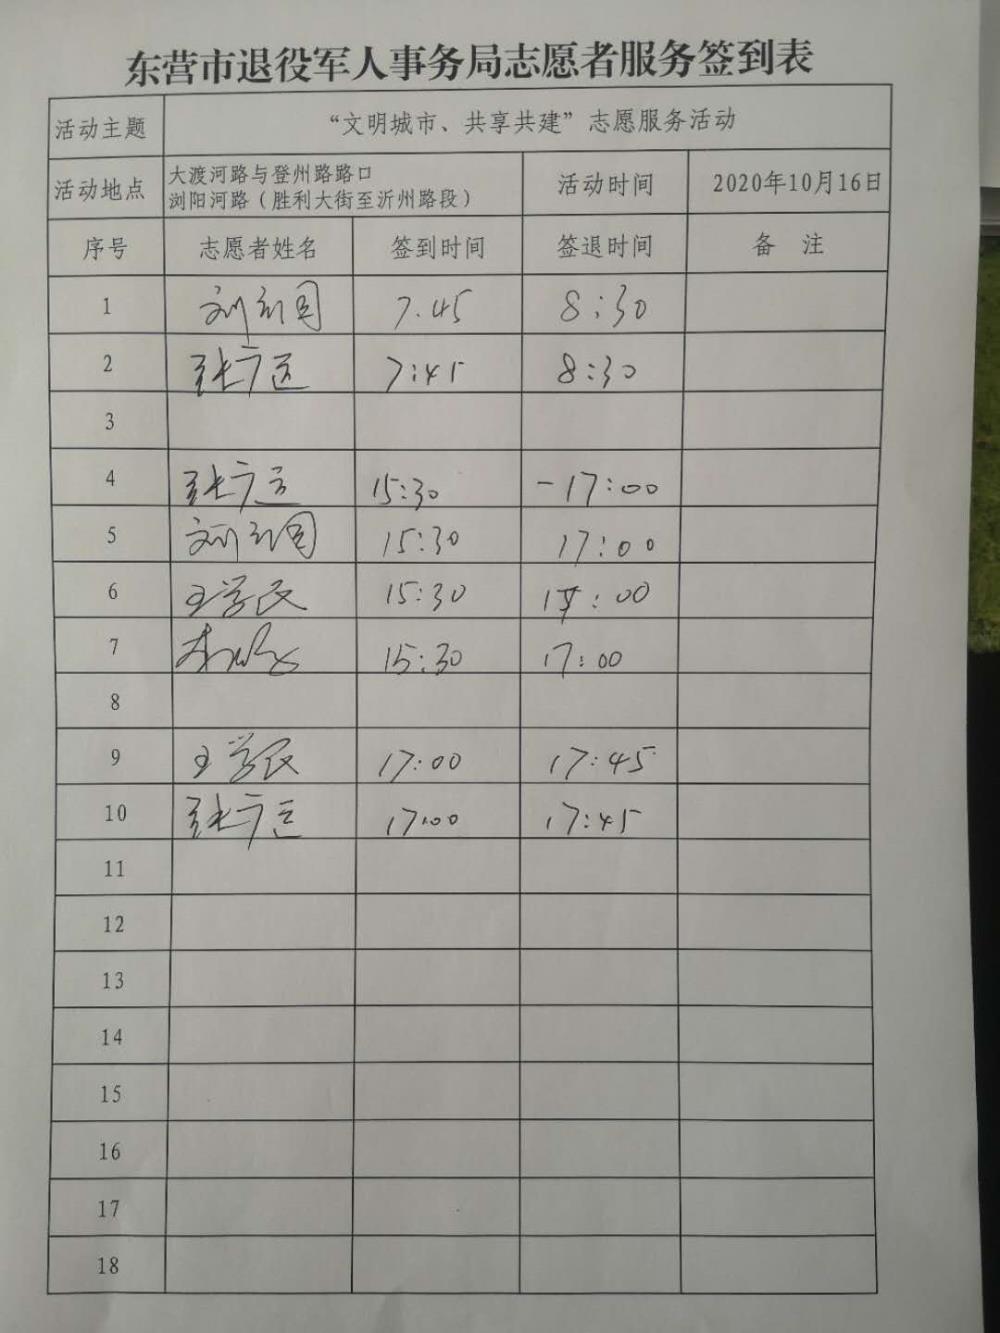 东营市退役军人事务局志愿者服务签到表
活动主题 “文明城市、共享共建”志愿服务活动
活动地点 大渡河路与登州路路口 活动时间 2020年10月16日
浏阳河路（胜利大街至沂州路段）
序号 志愿者姓名 签到时间 签退时间 备 注
1 刘 国 7.45 8:30
2 张广运 7:45 8:30
3
4 张广运 15:30 -17:00
5 刘 国 15:30 17:00
6 王学民 15:30 17:00
7 李 15:30 17:00
8
9 王学民 17:00 17:45
10 张广运 17:00 17:45
11
12
13
14
15
16
17
18